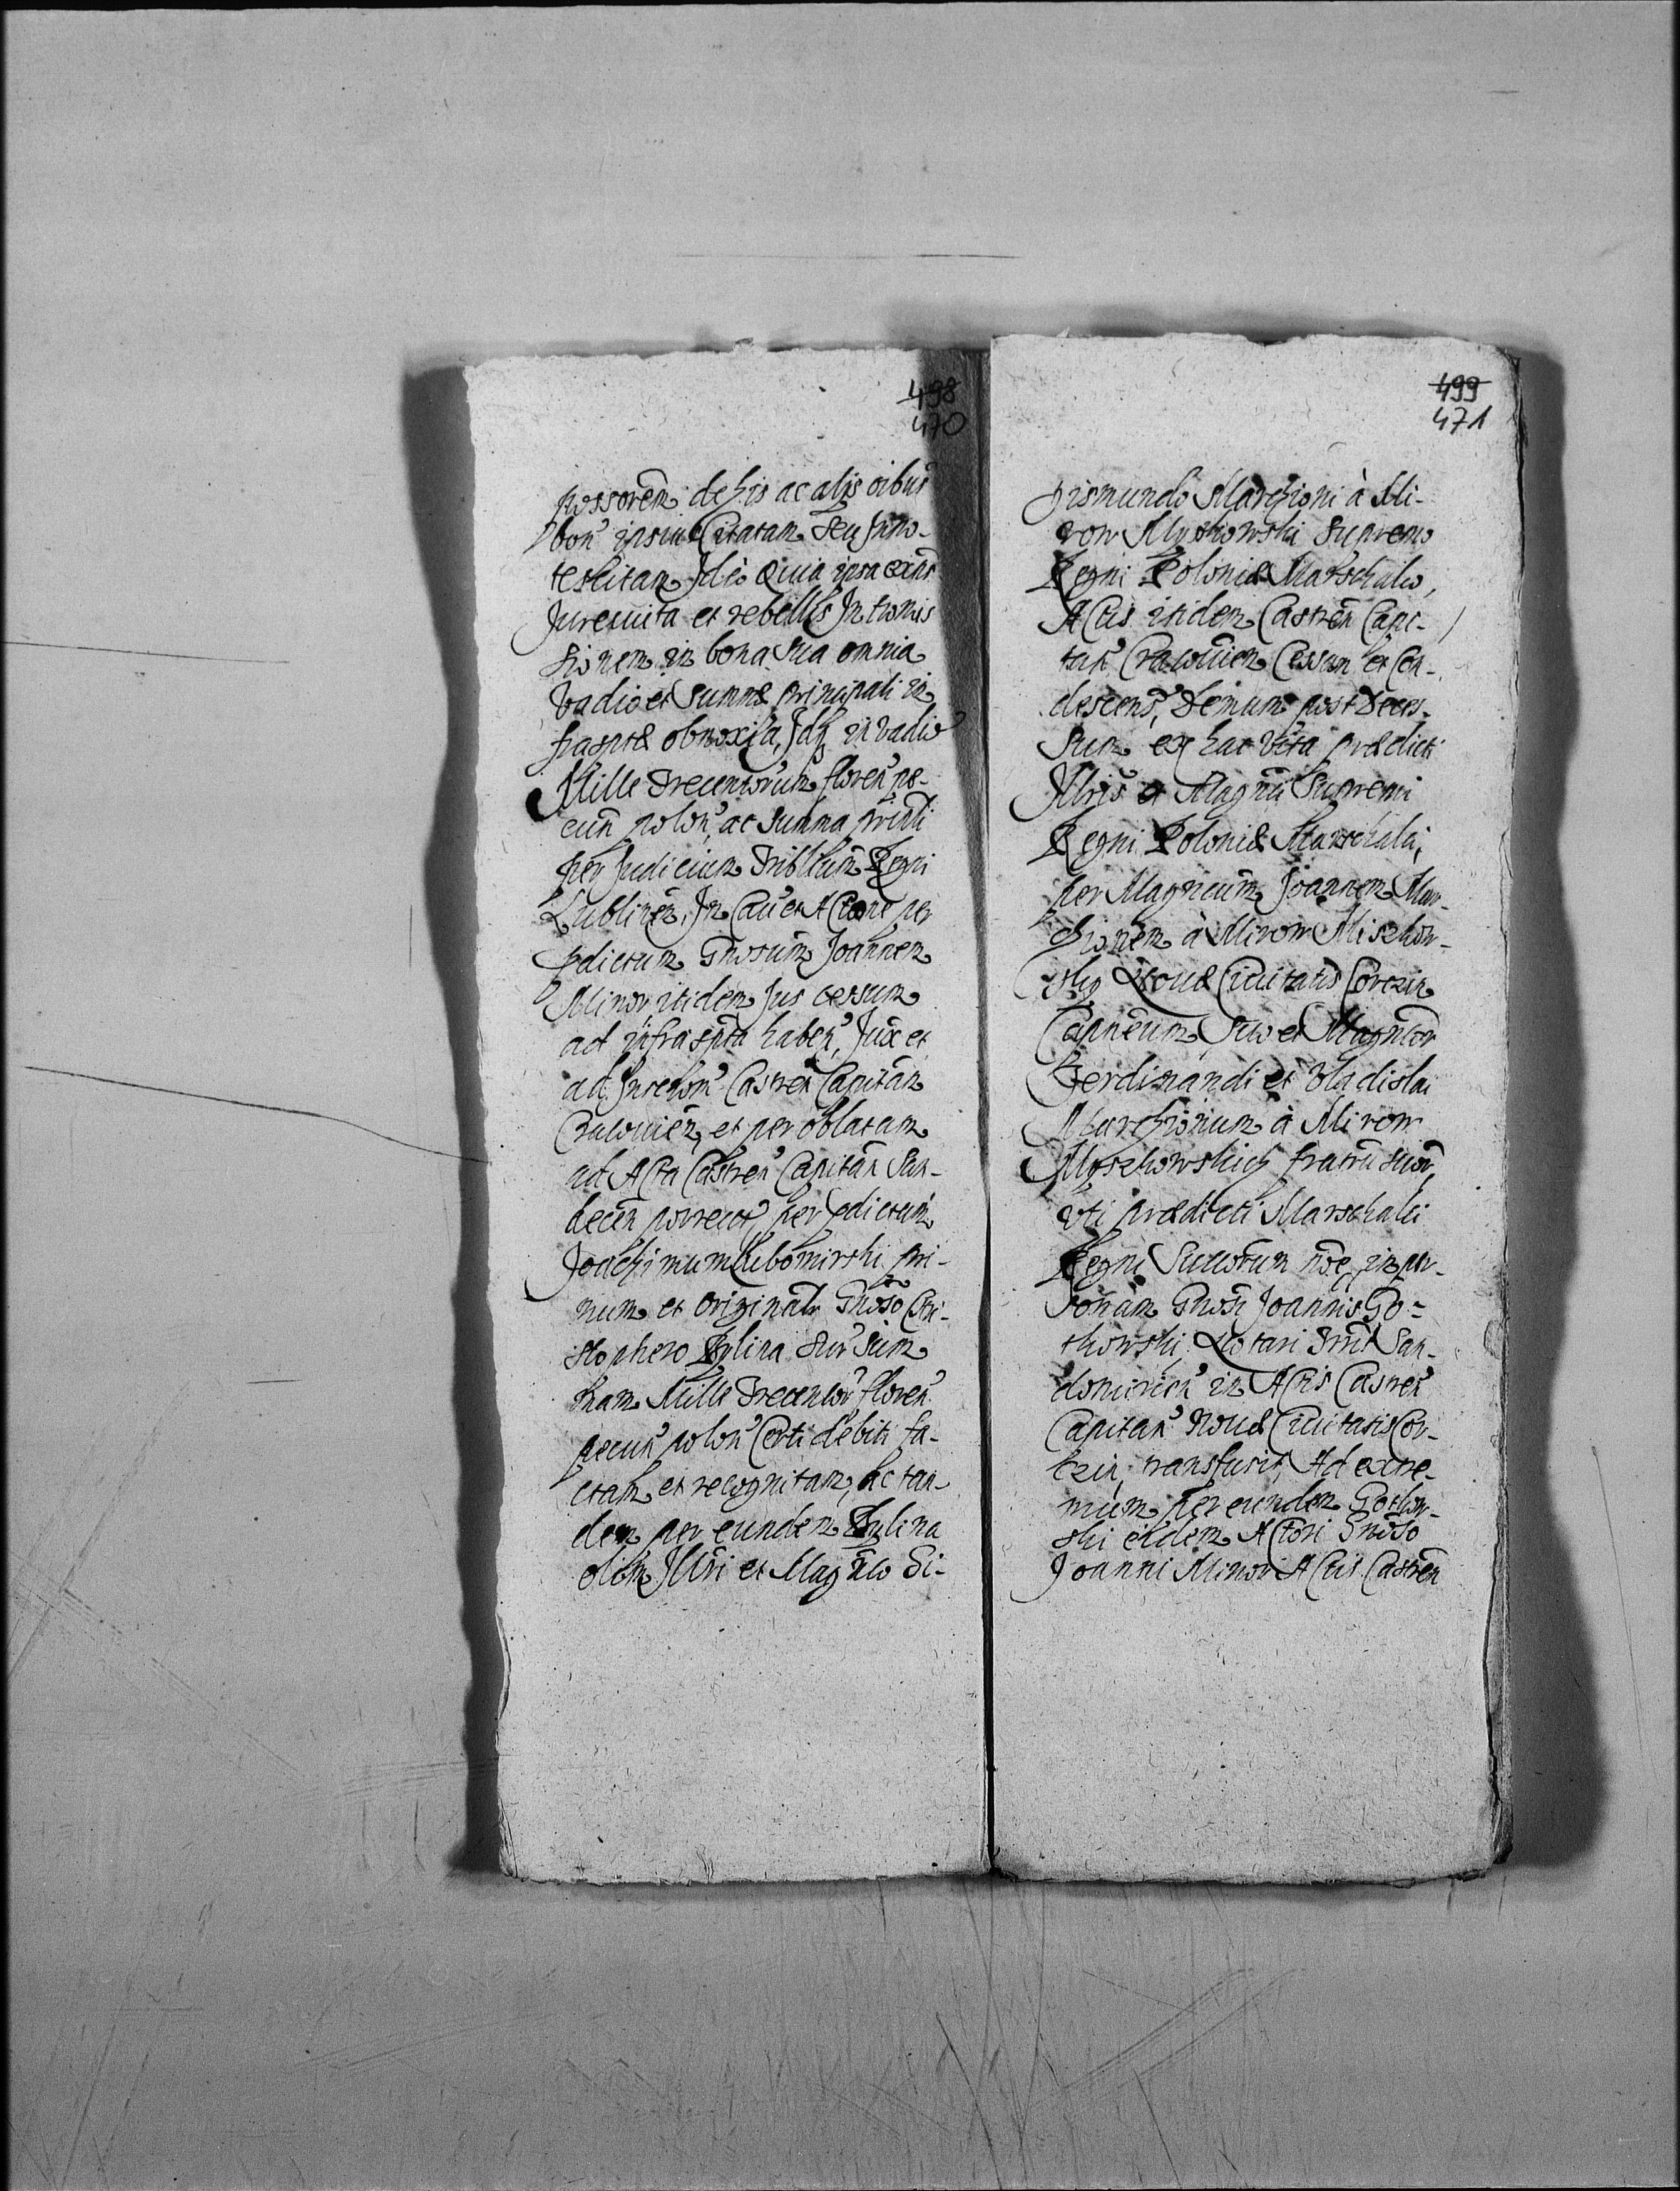 498
470
possorem de his ac alijs oibus
bon ipsius Citatam seu Inno-
tescitam Ideo Quia ipsa exñs
Jurevicta et rebellis
sionem in bona sua omnia
Vadio et summæ principali in
frasptæ obnoxia, Idq in vadio
Mille Trecentorum floren pe-
cun polon, ac summa prinli
per Judicium Tribllum Regni
Lublinen, In Cau et Actione per
pdictum Gnosum Joannem
Minor itidem Jus cessum
ad infraspta haben, Jux et
ad Castren Capitan
Cracouien, et per oblatam
ad Acta Castren Capitan San-
decen porrect, per pdictum
Joachimum Lubomirski pri-
mum et originalr Gnoso Cri-
stophero Bylina sur sum
mam Mille Trecentor floren
pecun polon Certi debiti fa-
ctam et recognitam, ac tan-
dem per eundem Bylina
olim Illri et Magnco Si-
499
471
gismundo Marchioni à Mi-
row Myszkowski Supremo
Regni Poloniæ Marschalco,
Actis itidem Castren Capi-
tan Cracouien Cessum et Con-
descens, Demum post Deces-
sum ex hac vita prædicti
Illris et Magnci Supremi
Regni Poloniæ Marschalci,
per Magncum Joannem Mar-
chionem à Mirow Miszkow-
sky Nouæ Ciuitatis Corczin
Capneum, suo et Magncor
Ferdinandi et Vladislai
Marchionum à Mirow
Myszkowskich fratru suor,
vti prædicti Marschalci
Regni Succorum noe, in per-
sonam Gnosi Joannis Go-
thowski Notari Trris San-
domirien in Actis Castren
Capitan Nouæ Ciuitatis Cor-
czin, transfusit, Ad extre-
mum per eundem Gothow-
ski eidem Actori Gnoso
Joanni Minor Actis Castren